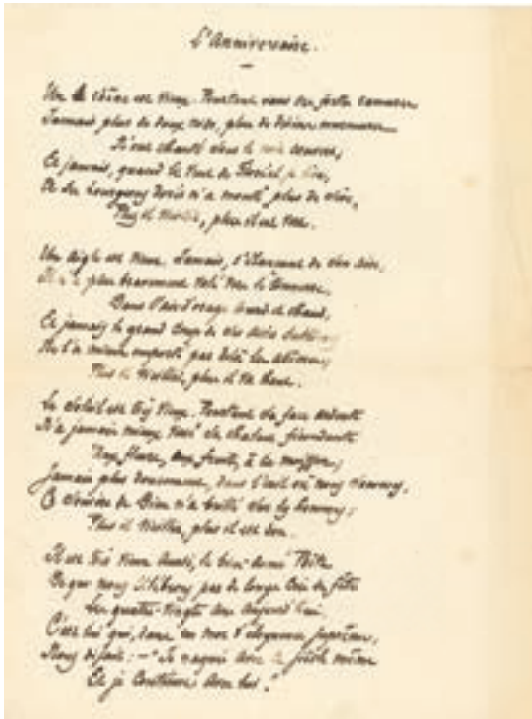 L'Anniversaire.
Un chêne est vieux. Pourtant
Jamais plus de doux nids, plus de divins murmures
N'ont chanté sous le
Et jamais, quand le vent de
De ses bourgeons dorés n'a monté plus de
Plus il vieillit, plus il est
Un aigle est vieux. Jamais, s'élançant de son aire,
Il n'a plus bravement volé vers le tonnerre,
Dans l'air d'orage lourd et chaud,
Et jamais le grand coup de ses ailes sublimes
Ne l'a mieux emporté par delà les abîmes;
Plus il vieillit, plus il va haut.
Le soleil est très vieux. Pourtant sa face ardente
N'a jamais mieux versé sa chaleur fécondante
Aux fleurs, aux fruits, à la moisson;
Jamais plus doucement, dans l'exil où nous sommes,
Ô sourire de Dieu n'a brillé sur les hommes;
Plus il vieillit, plus il est bon.
Il est très vieux aussi, le bien-aimé Poète
De qui nous célébrons par de longs cris de fête
Les quatre-vingts ans aujourd'hui.
C'est lui qui, dans un mot d'éloquence suprême,
Nous disait : — "Je naquis avec le siècle même
Et je continue avec lui."